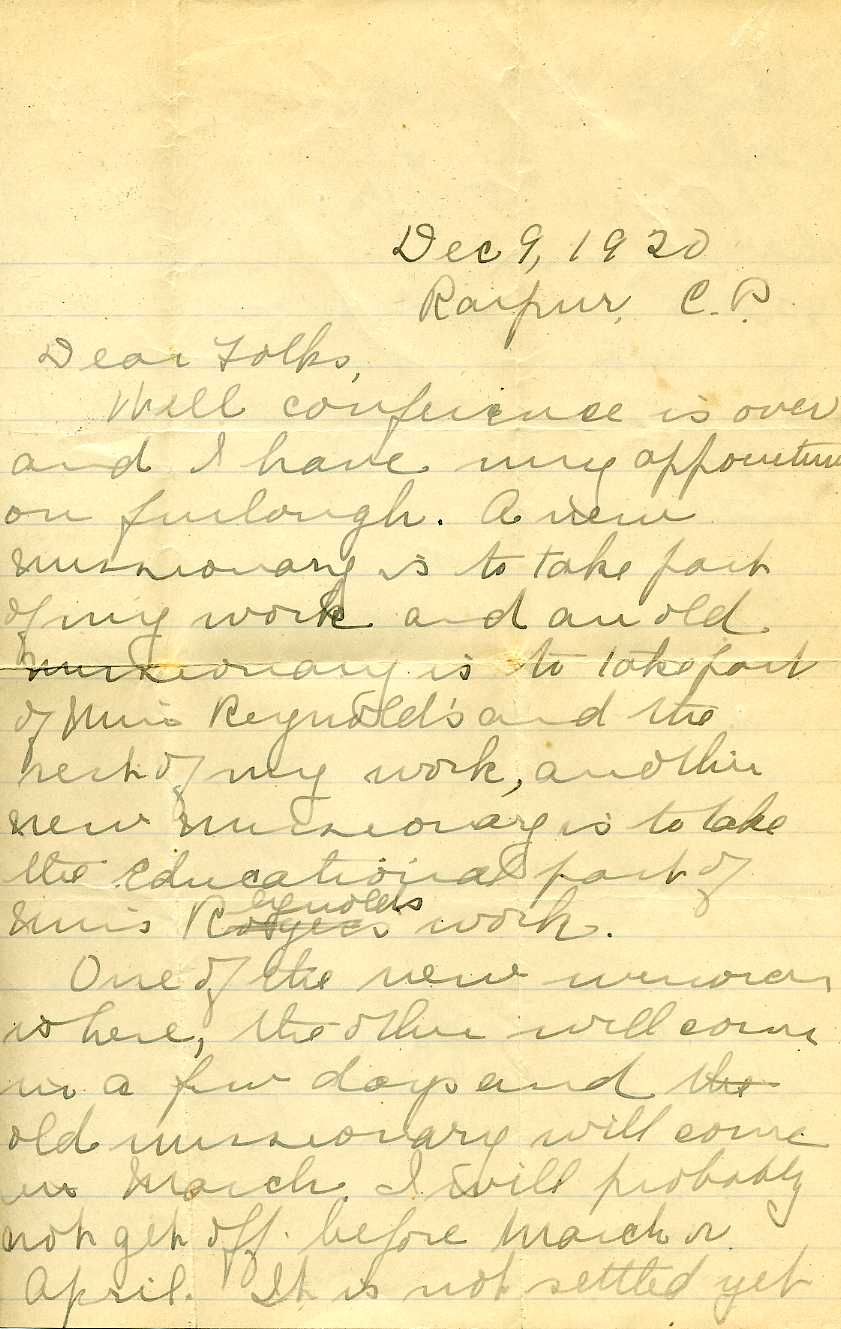 Dec 9, 1920
Raipur, C.P.
Dear Folks,
Well conference is over
and I have my appointment
on furlough. A new
missionary is to take part
of my work and an old
missionary is to take part
of Miss Reynold's and the
rest of my work, another
new missionary is to take
the educational part of
Miss Reynolds work.
One of the new women
is here, the other will come
in a few days and the
old missionary will come
in March. I will probably
not get off before March or
April. It is not settled yet